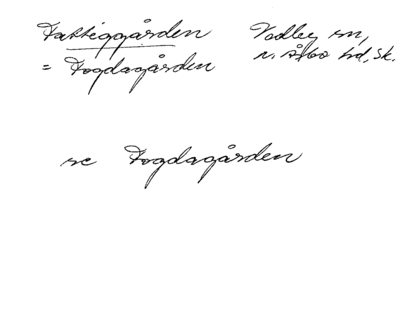 Fattiggården Vedby sn,
= Fogdagården n. Åsbo hd, Sk.
se Fogdagården